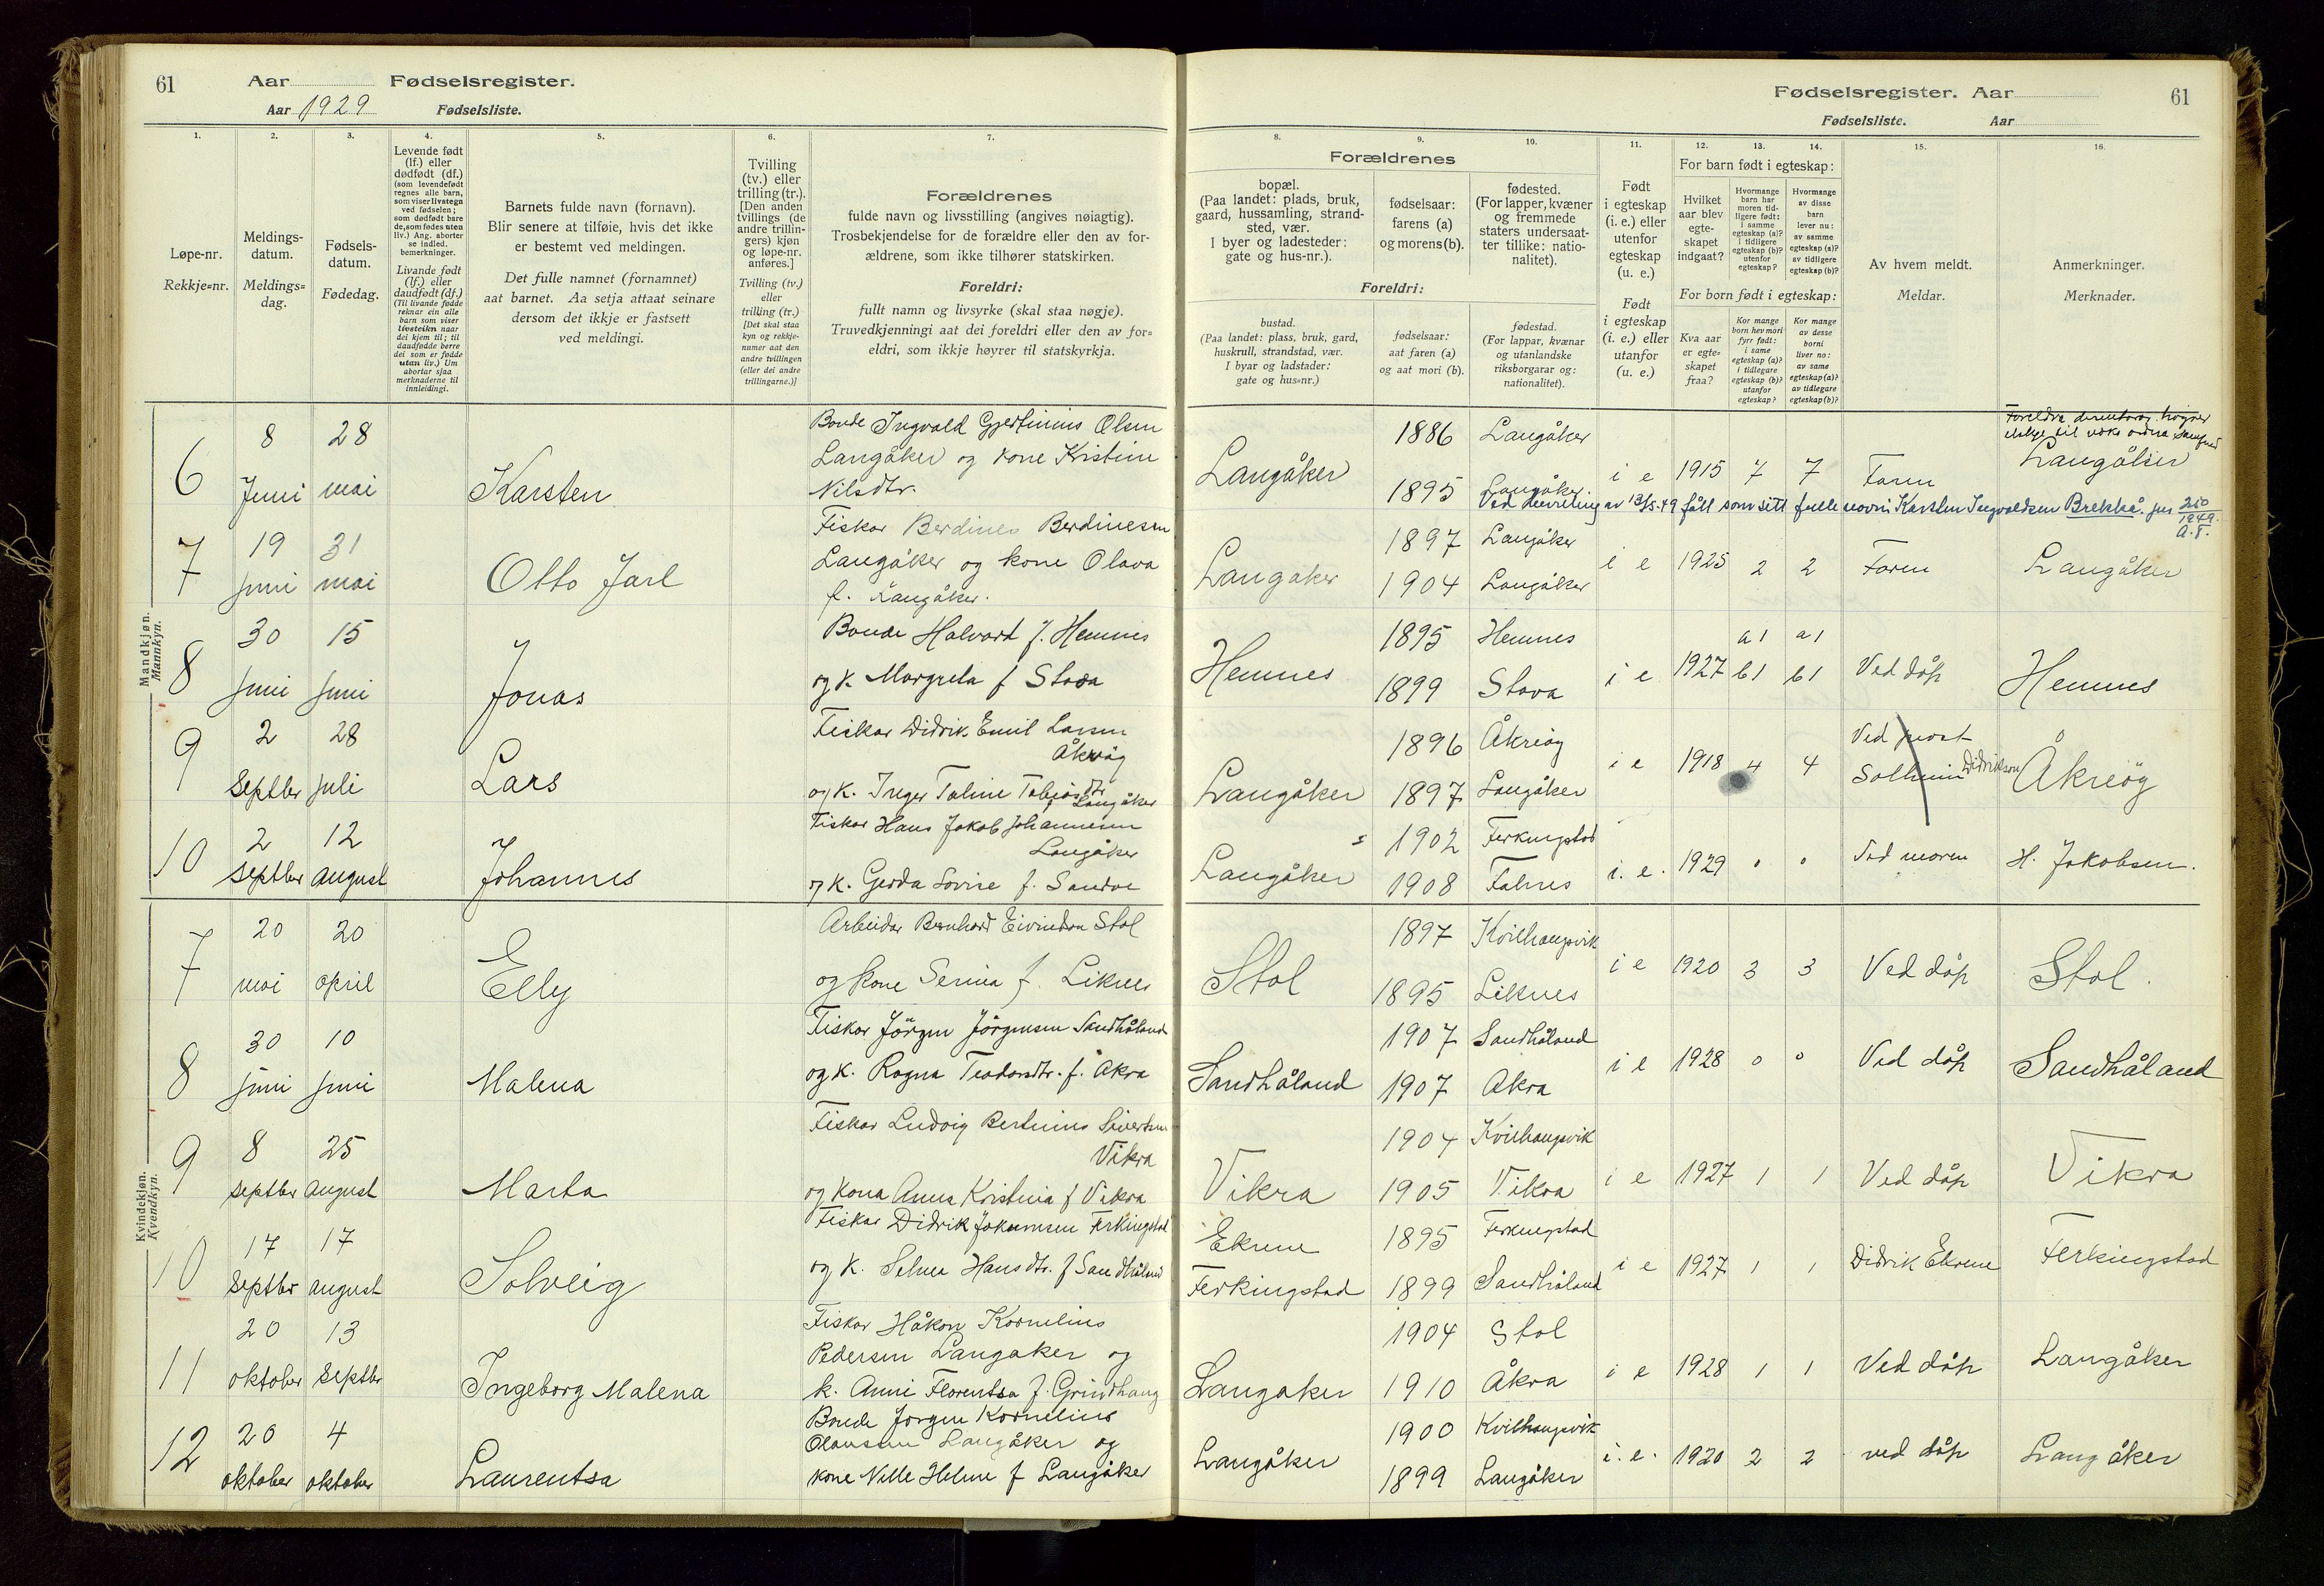 61 Aar Fødselsregister.
Aar 1929 Fødselsliste.
1. 2. 3. 4. 5. 6. 7.
Løpe-nr.
Rekkje=nr.
Meldings-
datum.
Meldings=
dag.
Fødsels-
datum.
Fødedag.
Levende født
(lf.) eller
dødfødt (df.)
(som levendefødt
regnes alle barn,
som viser livstegn
ved fødselen;
som dødfødt bare
de, som fødes uten
liv.) Ang. aborter
se indled.
bemerkninger.
Livande født
(lf.) eller
daudfødt (df.)
(Til livande fødde
reknar ein alle
barn som viser
livsteikn naar
dei kjem til; til
daudfødde berre
dei som er fødde
utan liv.) Um
abortar sjaa
merknaderne til
innleidingi.
Barnets fulde navn (fornavn).
Blir senere at tilføie, hvis det ikke
er bestemt ved meldingen.
Det fulle namnet (fornamnet)
aat barnet. Aa setja attaat seinare
dersom det ikkje er fastsett
ved meldingi.
Tvilling
(tv.) eller
trilling (tr.).
[Den anden
tvillings (de
andre trillin-
gers) kjøn
og løpe-nr.
anføres.]
Tvilling (tv.)
eller
trilling (tr.)
[Det skal staa
kyn og rekkje-
numer aat den
andre tvillingen
(eller dei andre
trillingarne.)]
Forældrenes
fulde navn og livsstilling (angives nøiagtig).
Trosbekjendelse for de forældre eller den av for-
ældrene, som ikke tilhører statskirken.
Foreldri:
fullt namn og livsyrke (skal staa nøgje).
Truvedkjenningi aat dei foreldri eller den av for=
eldri, som ikkje høyrer til statskyrkja.
Mandkjøn.
Mannkyn.
6
8 Juni
28 mai
Karsten
Bonde Ingvald Gjertinius Olsen
Langåker og kone Kristine
Nilsdtr.
7
19 juni
31 mai
Otto Jarl
Fiskar Berdines Berdinesen
Langåker og kone Olava
f. Langåker.
8
30 juni
15 juni
Jonas
Bonde Halvard J. Hemnes
og k. Margreta f Stava
9
2 Septbr
28 juli
Lars
Fiskar Didrik Emil Larsen
Åkreög
og k. Inger Taline Tobiasdtr
Langåker
10
2 septbr
12 august
Johannes
Fiskar Hans Jakob Johannesen
Langåker
og k. Gerda Lovise f. Sandve
Kvindekjøn.
Kvendkyn.
7
20 mai
20 april
Elly
Arbeidar Bernhard Eivindsen Stol
og kone Serina f. Liknes
8
30 juni
10 juni
Malena
Fiskar Jörgen Jörgensen Sandhåland
og k. Ragna Teodorsdtr. f. Åkra
9
8 septbr
25 august
Marta
Fiskar Ludvig Bertinius Sivertsen
Vikra
og kona Anna Kristina f Vikra
10
17 septbr
17 august
Solveig
Fiskar Didrik Jokumsen Ferkingstad
og k. Selma Hansdtr. f Sandhåland
11
20 oktober
13 septbr
Ingeborg Malena
Fiskar Håkon Kornelius
Pedersen Langaker og
k. Anni Florentsa f. Grindhaug
12
20 oktober
4 oktober
Laurentsa
Bonde Jorgen Kornelius
Olausen Langåker og
kone Nelle Helene f Langåker
Fødselsregister. Aar 61
Fødselsliste. Aar
8. 9. 10. 11. 12. 13. 14. 15. 16.
Forældrenes
bopæl.
(Paa landet: plads, bruk,
gaard, hussamling, strand-
sted, vær.
I byer og ladesteder:
gate og hus-nr.).
fødselsaar:
farens (a)
og morens (b).
fødested.
(For lapper, kvæner
og fremmede
staters undersaat-
ter tillike: natio-
nalitet).
Foreldri:
bustad.
(Paa landet: plass, bruk, gard,
huskrull, strandstad, vær.
I byar og ladstader:
gate og hus=nr.)
fødselsaar:
aat faren (a)
og aat mori (b).
fødestad.
(For lappar, kvænar
og utanlandske
riksborgarar og:
nationalitet).
Født
i egteskap
(i. e.) eller
utenfor
egteskap
(u. e.)
Født
i egteskap
(i. e.) eller
utanfor
(u. e.)
For barn født i egteskap:
Hvilket
aar blev
egte-
skapet
indgaat?
Hvormange
barn har
moren tid-
ligere født:
i samme
egteskap (a)?
i tidligere
egteskap (b)?
utenfor
egteskap?
Hvormange
av disse
barn
lever nu:
av samme
egteskap (a)?
av tidligere
egteskap (b)?
For born født i egteskap:
Kva aar
er egte=
skapet
fraa?
Kor mange
born hev mori
fyrr født:
i same
egteskap (a)?
i tidlegare
egteskap (b)?
utanfor
egteskap?
Kor mange
av desse
borni
liver no:
av same
egteskap (a)?
av tidlegare
egteskap (b)?
Av hvem meldt.
Meldar.
Anmerkninger.
Merknader.
Langåker 1886 Langåker
1895 Langåker i e 1915 7 7 Faren Langåker
Ved bevilling av 13/5-49 fått som sitt fulle navn Karsten Ingvaldsen Brekkå. jnr 210/1949. A.F.
Langåker 1897 Langåker
1904 Langåker i e 1925 2 2 Faren Langåker
Hemnes 1895 Hemnes
1899 Stava i e 1927 a1 b1 a1 b1 Ved dåp Hemnes
Langåker 1896 Åkreög
1897 Langåker i e 1918 4 4 Ved prost Solheim Didriksen Åkreög
Langåker 1902 Ferkingstad
1908 Falnes i. e. 1929 0 0 Ved moren H. Jakobsen.
Stol 1897 Kvilhaugsvik
1895 Liknes i e 1920 3 3 Ved dåp Stol.
Sandhåland 1907 Sandhåland
1907 Åkra i e 1928 0 0 Ved dåp Sandhåland
Vikra 1904 Kvilhaugsvik
1905 Vikra i e 1927 1 1 Ved dåp Vikra
Ekrene 1895 Ferkingstad
Ferkingstad 1899 Sandhåland i e 1927 1 1 Didrik Ekrene Ferkingstad
Langaker 1904 Stol
1910 Åkra i e 1928 1 1 Ved dåp Langåker
Langåker 1900 Kvilhaugsvik
1899 Langåker i. e. 1920 2 2 ved dåp Langåker